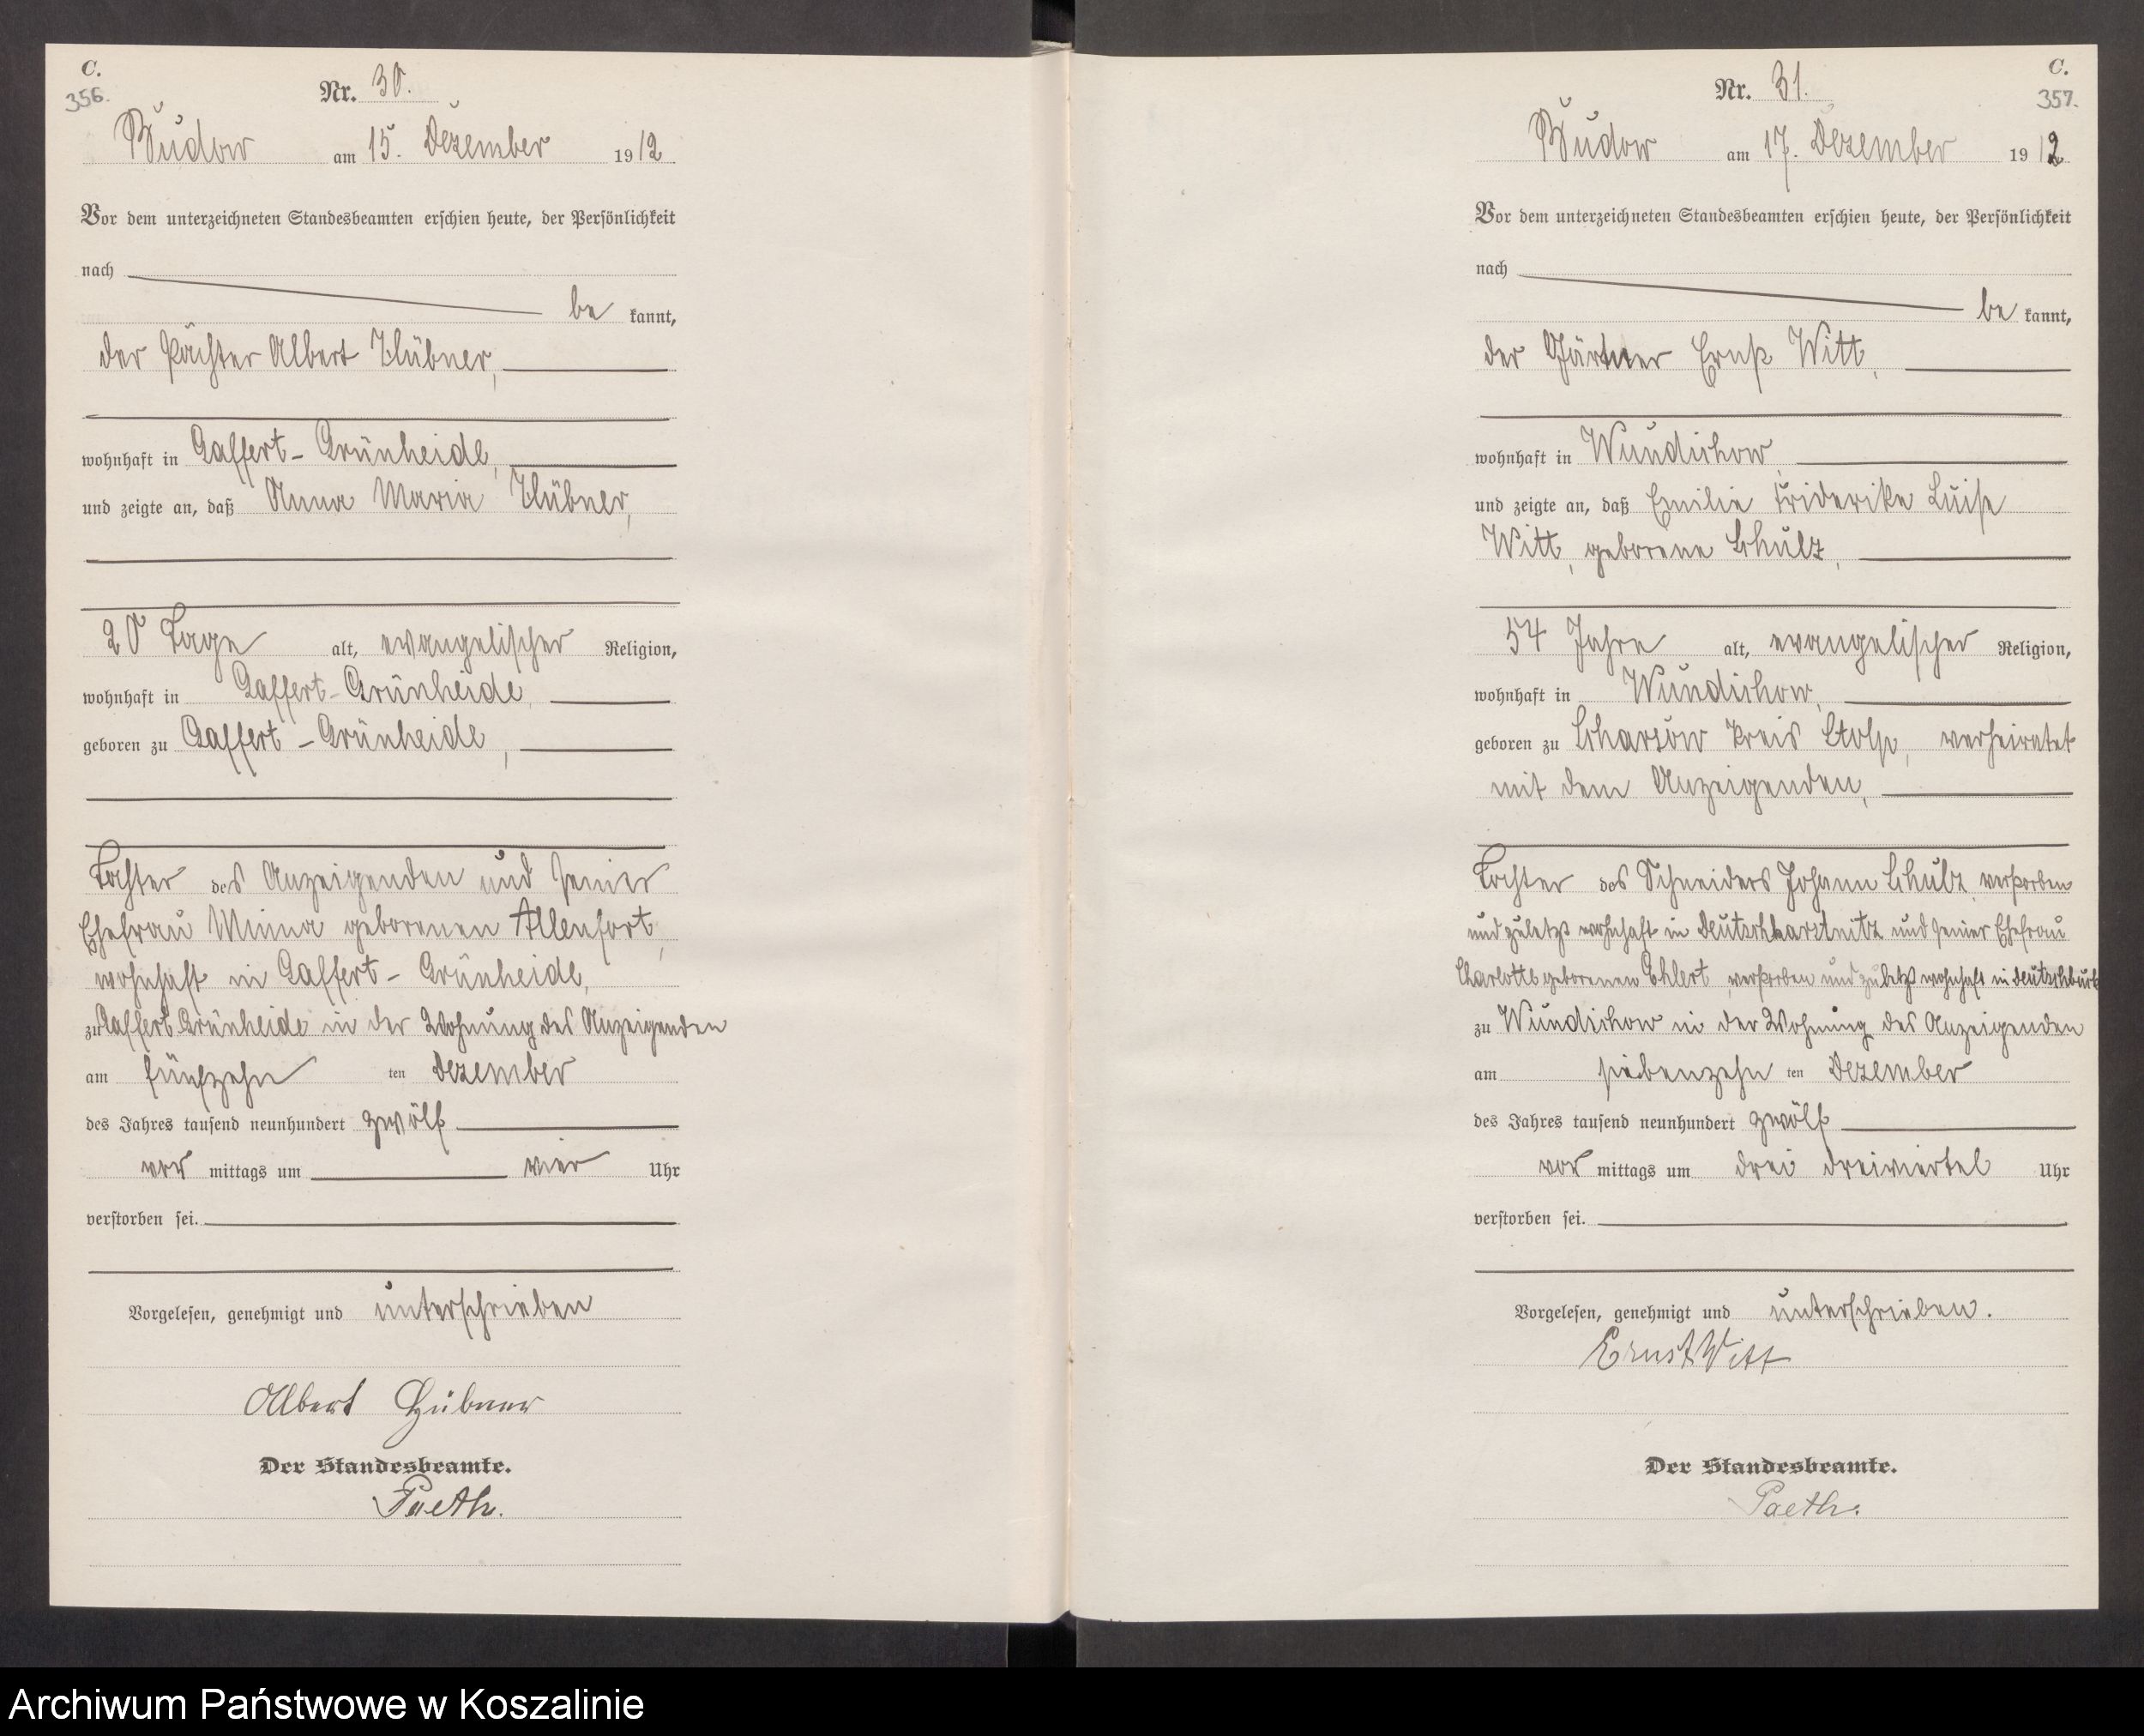 C.
356.
Nr. 30.
Budow am 15. Dezember 1912
Vor dem unterzeichneten Standesbeamten erschien heute, der Persönlichkeit
nach
be kannt,
der Pächter Albert Hübner,
wohnhaft in Gaffert-Grünheide,
und zeigte an, daß Anna Maria Hübner,
20 Tage alt, evangelischer Religion,
wohnhaft in Gaffert-Grünheide
geboren zu Gaffert-Grünheide,
Tochter des Anzeigenden und seiner
Ehefrau Minna geborenen Allenfort,
wohnhaft in Gaffert-Grünheide,
zu Gaffert Grünheide in der Wohnung des Anzeigenden
am fünfzehn ten Dezember
des Jahres tausend neunhundert zwölf
vor mittags um vier Uhr
verstorben sei.
Vorgelesen, genehmigt und unterschrieben
Albert Hübner
Der Standesbeamte.
Paeth.
C.
357.
Nr. 31.
Budow am 17. Dezember 1912
Vor dem unterzeichneten Standesbeamten erschien heute, der Persönlichkeit
nach
be kannt,
der Gärtner Ernst Witt,
wohnhaft in Wundichow
und zeigte an, daß Emilie Friderike Luise
Witt, geborene Schulz,
54 Jahre alt, evangelischer Religion,
wohnhaft in Wundichow,
geboren zu Scharsow Kreis Stolp, verheiratet
mit dem Anzeigenden,
Tochter des Schneiders Johann Schulz verstorben
und zuletzt wohnhaft in und seiner Ehefrau
Charlotte geborenen Ehlert, verstorben und zuletzt wohnhaft in
zu Wundichow in der Wohnung des Anzeigenden
am siebenzehn ten Dezember
des Jahres tausend neunhundert zwölf
vor mittags um drei dreiviertel Uhr
verstorben sei.
Vorgelesen, genehmigt und unterschrieben.
Ernst Witt
Der Standesbeamte.
Paeth.
Archiwum Państwowe w Koszalinie